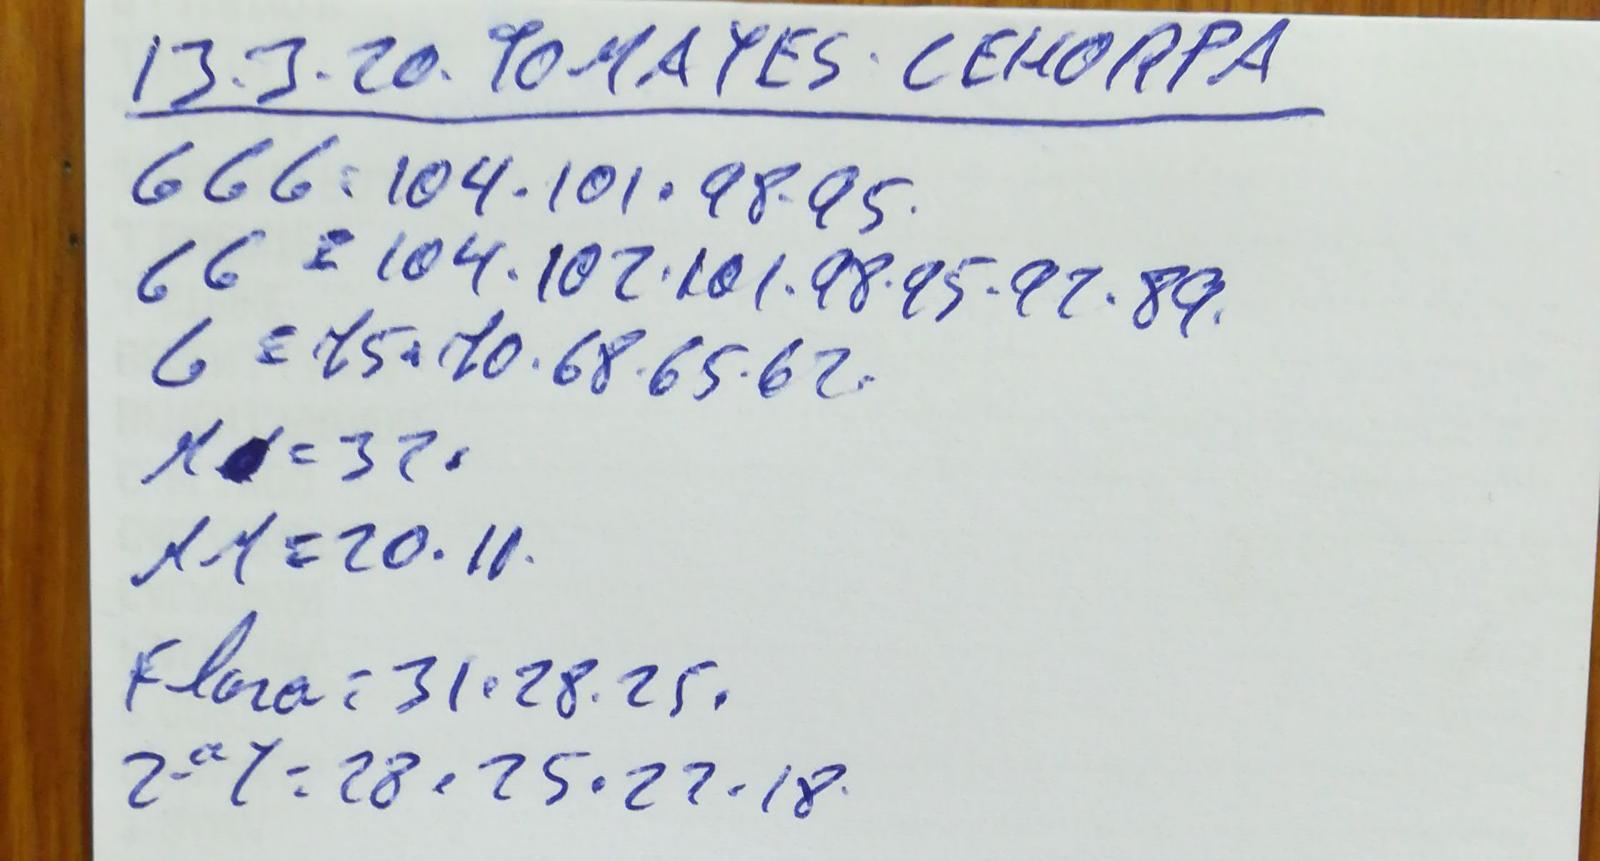 13.3.20. TOMATES. CEHORPA
GGG = 104.101.98.95.
GG = 104.102.101.98.95.92.89.
G = 75.70.68.65.62.
M = 32.
MM = 20.11.
Flora = 31.28.25.
2ªT = 28.25.22.18.